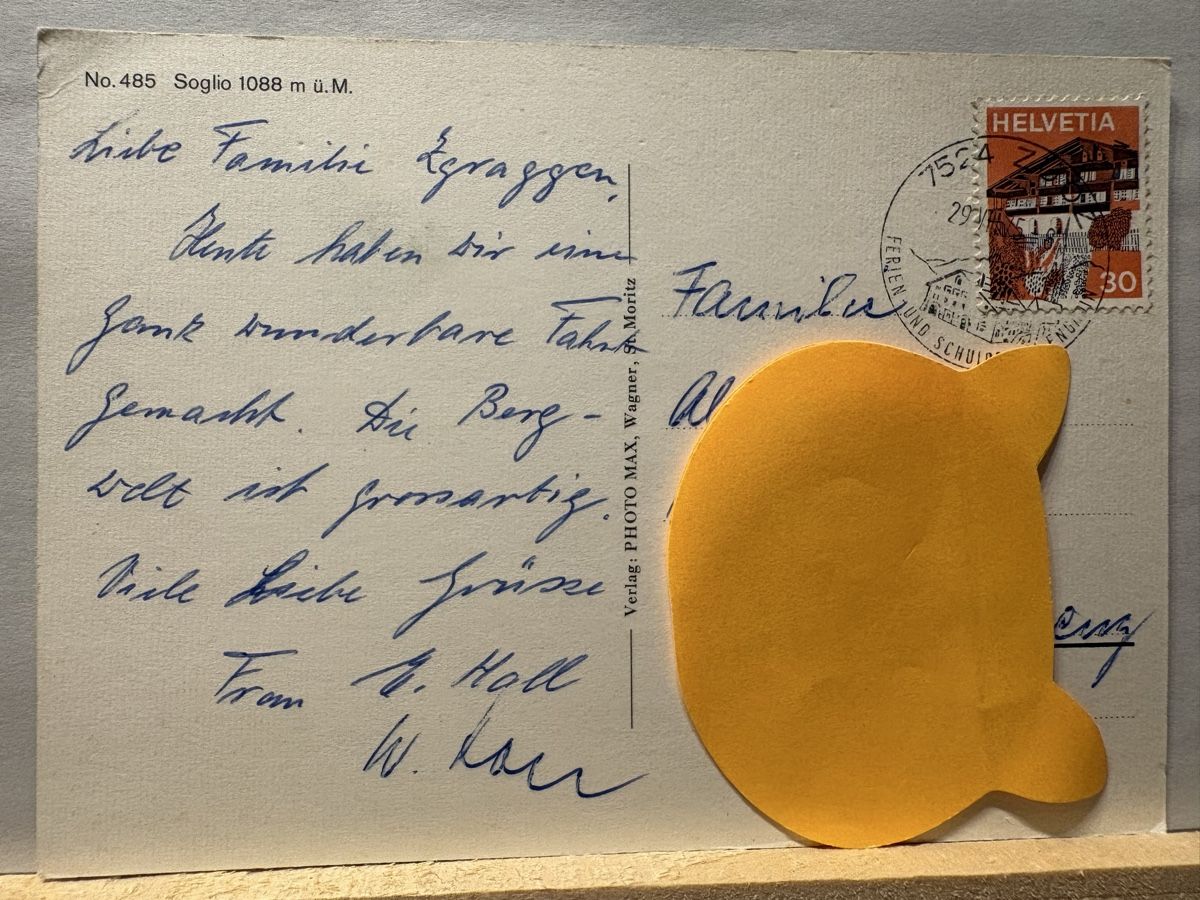 No. 485 Soglio 1088 m ü.M.
Liebe Familie Zgraggen,
Heute haben wir eine
ganz wunderbare Fahrt
gemacht. Die Berg-
welt ist grossartig.
Viele Liebe Grüsse
Frau E. Hall
W.
Verlag: PHOTO MAX, Wagner, St. Moritz
HELVETIA
30
7524 ZUOZ
FERIEN UND
Familie